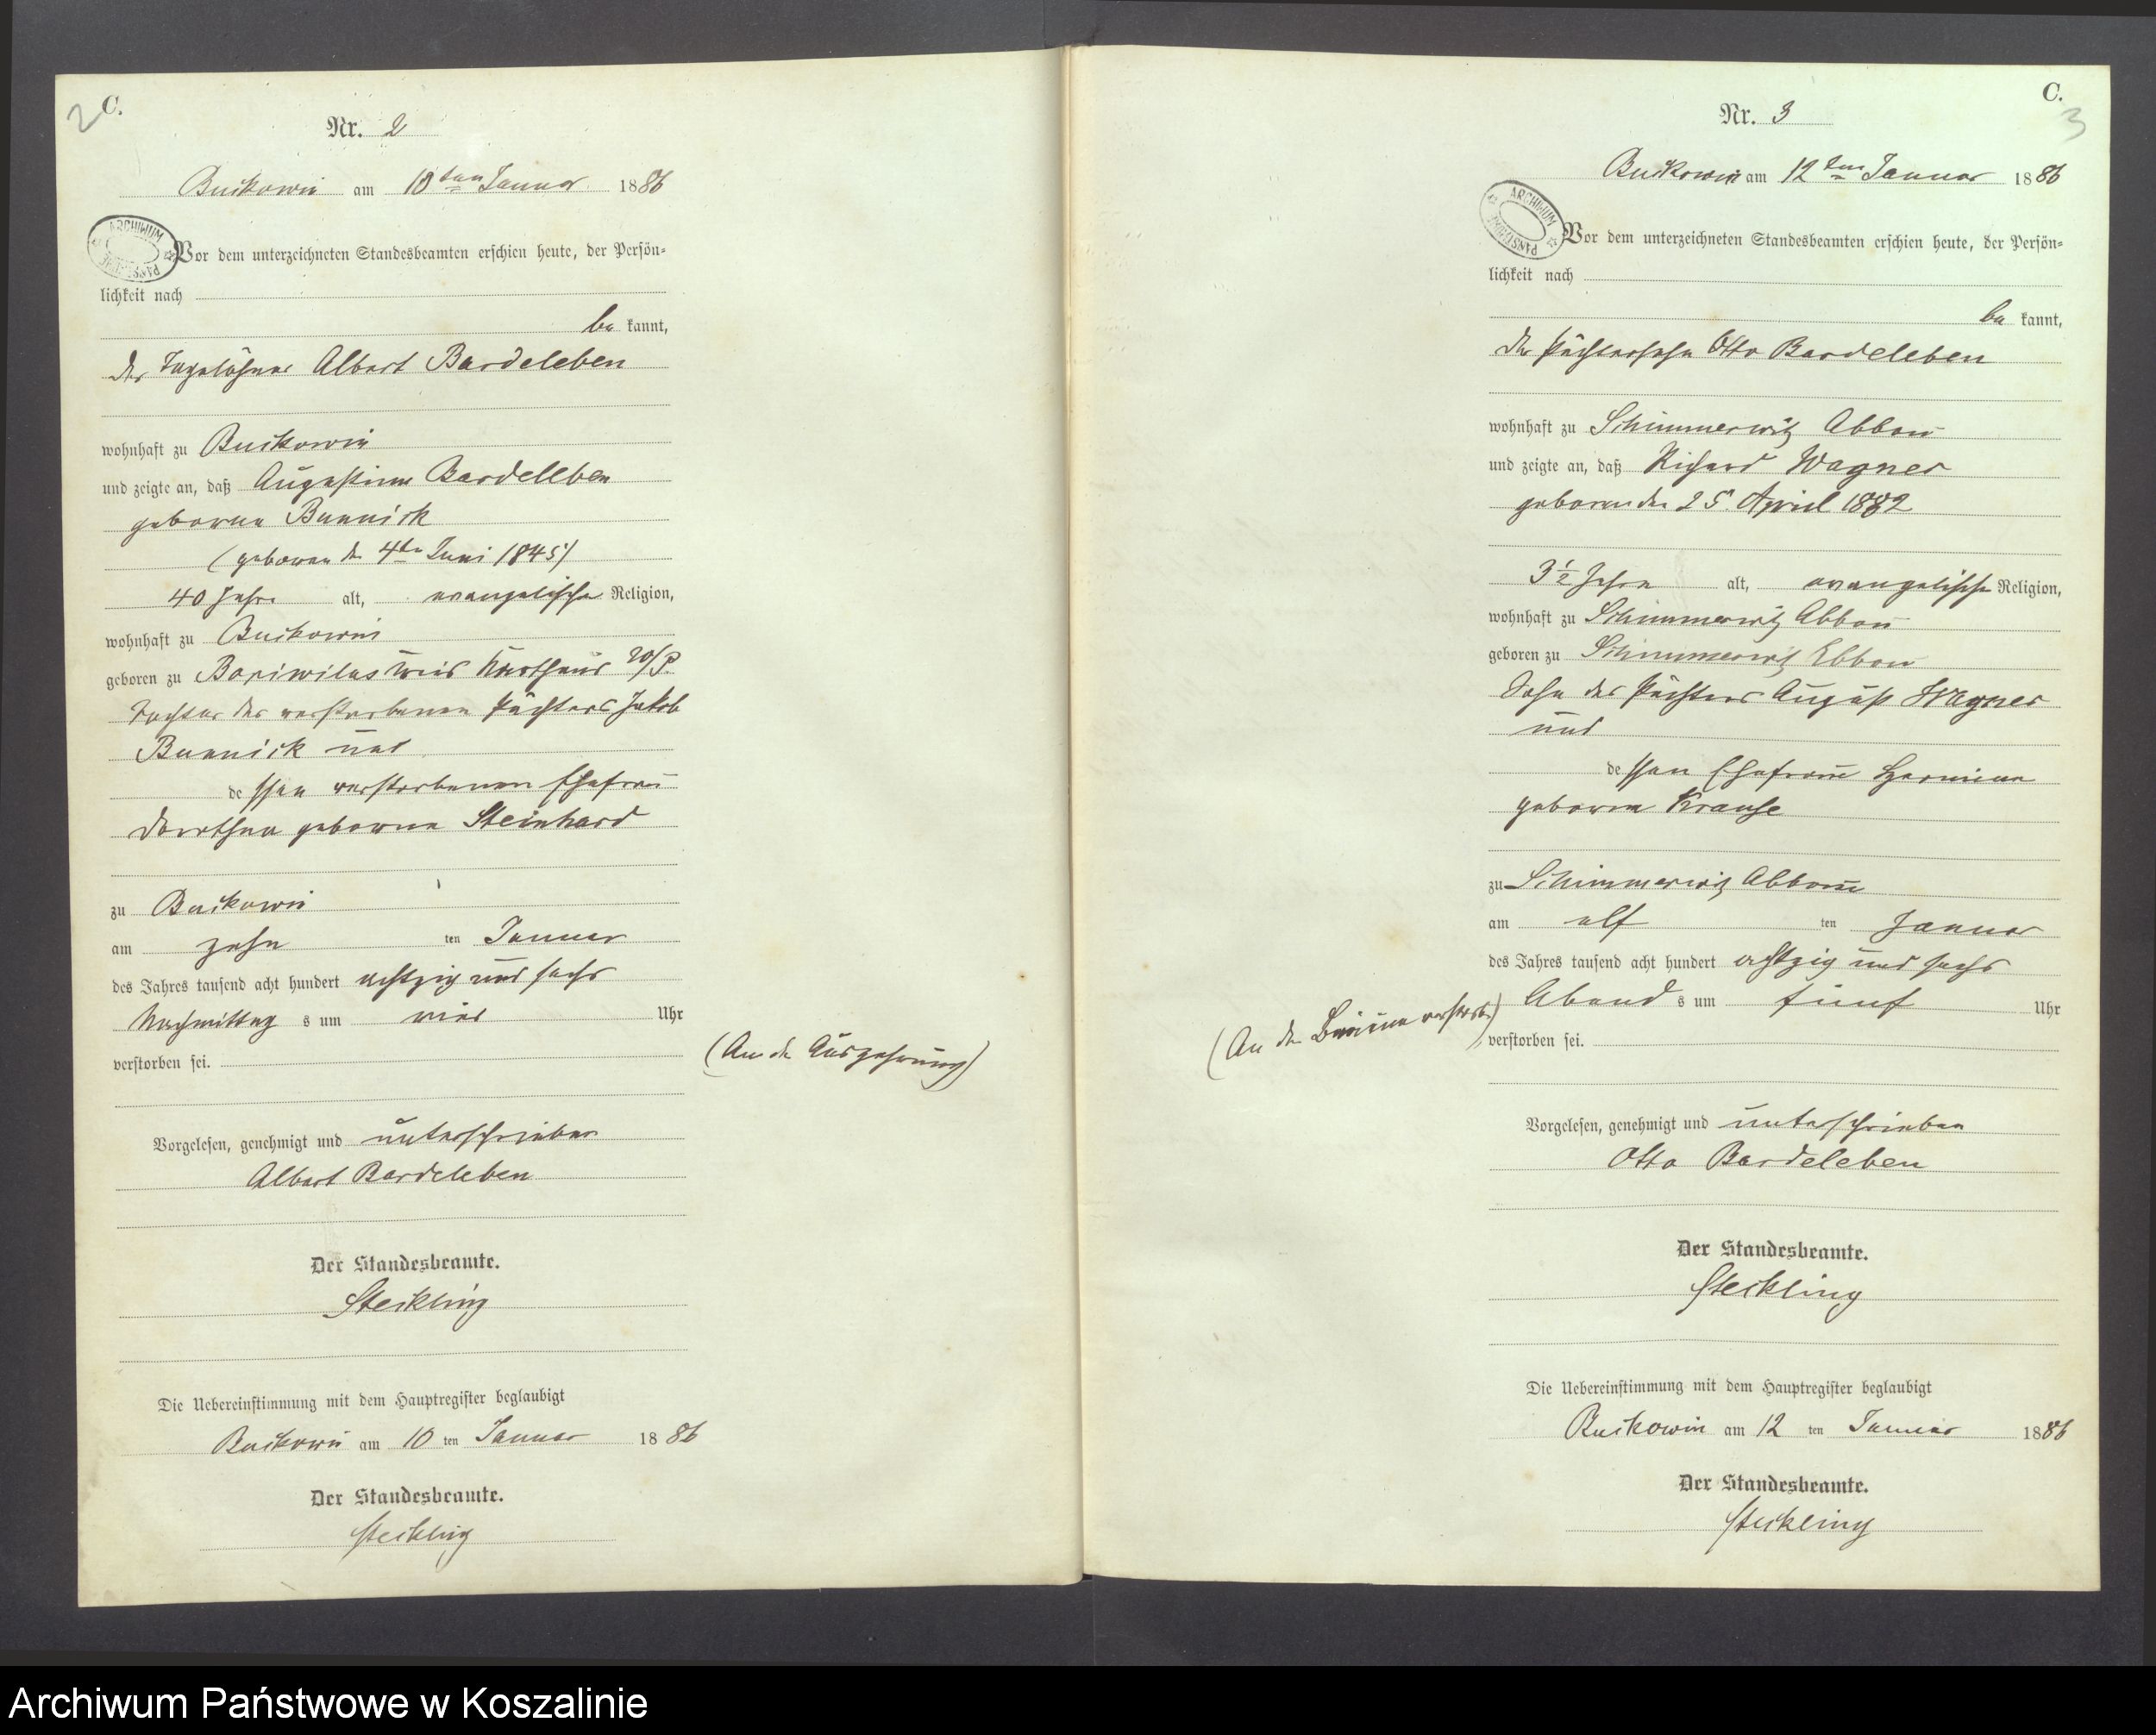 2 C.
Nr. 2
Buckowin am 10ten Januar 1886
ARCHIWUM PAŃSTWOWE
Vor dem unterzeichneten Standesbeamten erschien heute, der Persön-
lichkeit nach
be kannt,
der Tagelöhner Albert Bardeleben
wohnhaft zu Buckowin
und zeigte an, daß Augustine Bardelleben
geborene Bunnick
(geboren den 4ten Juni 1845)
40 Jahre alt, evangelischer Religion,
wohnhaft zu Buckowin
geboren zu Karthaus W/P.
Tochter des verstorbenen Pächters Jakob
Bunnick und
de ssen verstorbenen Ehefrau
Dorothea geborene Steinhard
zu Buckowin
am zehn ten Januar
des Jahres tausend acht hundert achtzig und sechs
Nachmittag s um vier Uhr
verstorben sei.
(An der Auszehrung)
Vorgelesen, genehmigt und unterschrieben
Albert Bardeleben
Der Standesbeamte.
Steckling
Die Uebereinstimmung mit dem Hauptregister beglaubigt
Buckowin am 10 ten Januar 1886
Der Standesbeamte.
Steckling
C.
3
Nr. 3
Buckowin am 12ten Januar 1886
ARCHIWUM PAŃSTWOWE
Vor dem unterzeichneten Standesbeamten erschien heute, der Persön-
lichkeit nach
be kannt,
der Pächtersohn Otto Bardeleben
wohnhaft zu Schimmerwitz Abbau
und zeigte an, daß Richard Wagner
geboren den 25. April 1882
3½ Jahre alt, evangelischer Religion,
wohnhaft zu Schimmerwitz Abbau
geboren zu Schimmerwitz Abbau
Sohn des Pächters August Wagner
und
de ssen Ehefrau Hermine
geborene Krause
zu Schimmerwitz Abbau
am elf ten Januar
des Jahres tausend acht hundert achtzig und sechs
Abend s um fünf Uhr
(An der Bräune verstorben)
verstorben sei.
Vorgelesen, genehmigt und unterschrieben
Otto Bardeleben
Der Standesbeamte.
Steckling
Die Uebereinstimmung mit dem Hauptregister beglaubigt
Buckowin am 12 ten Januar 1886
Der Standesbeamte.
Steckling
Archiwum Państwowe w Koszalinie